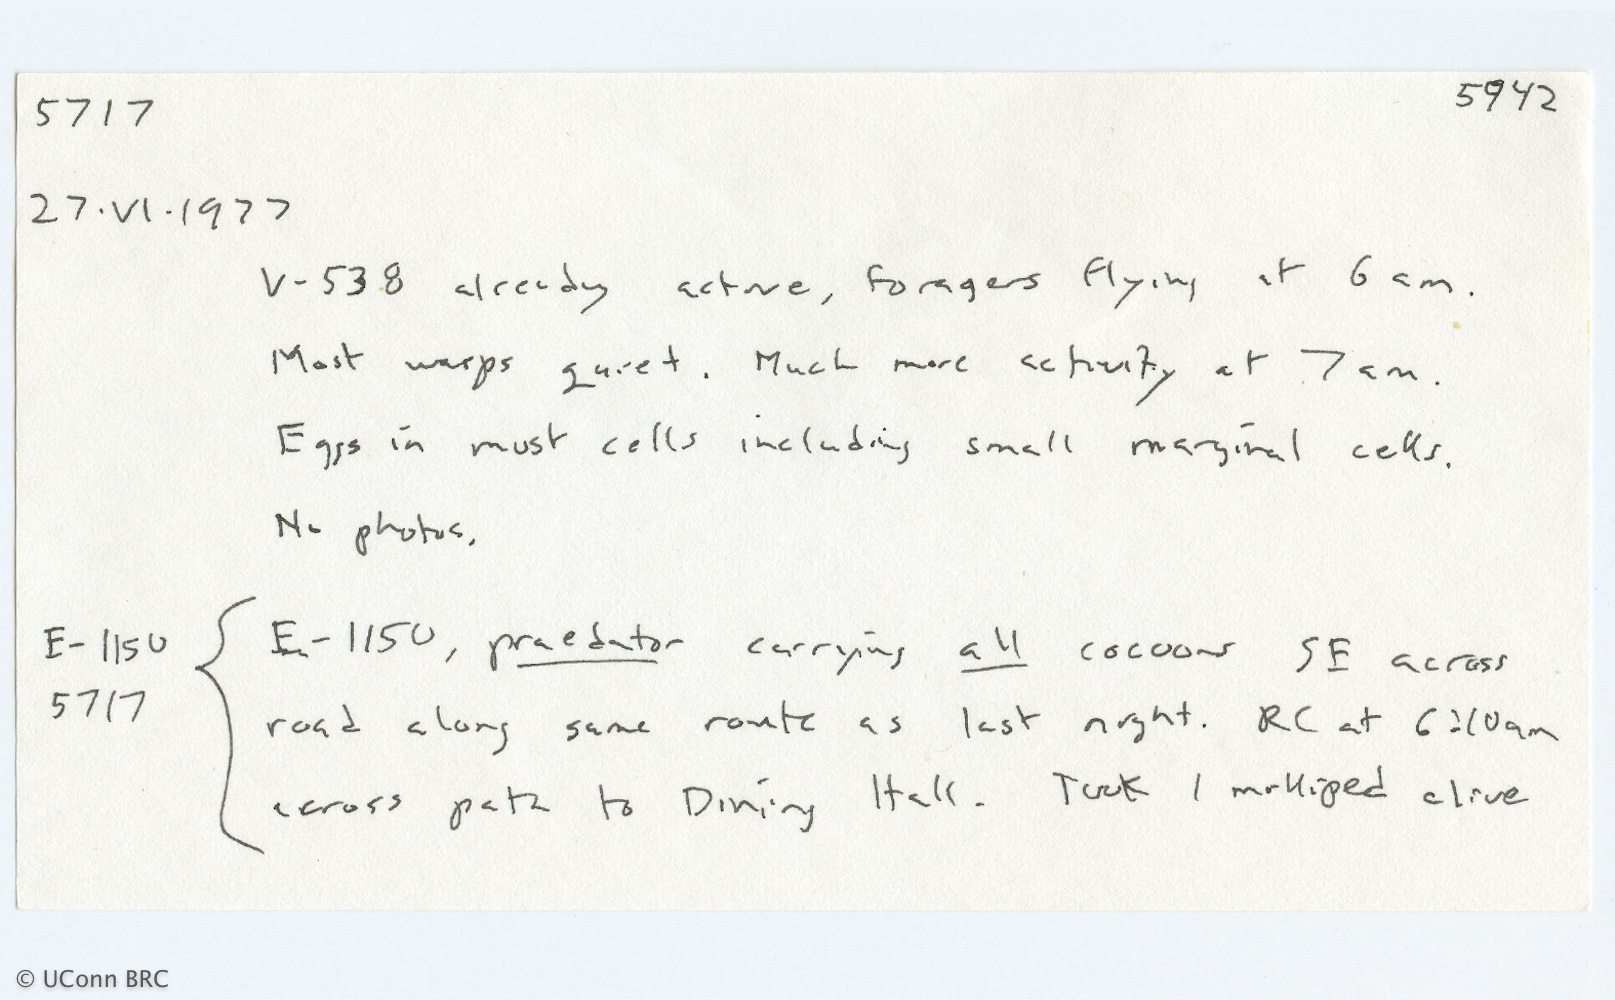 5717 5942
27·VI·1977
V-538 already active, foragers flying at 6 am.
Most wasps quiet. Much more activity at 7 am.
Eggs in most cells including small marginal cells.
No photos.
E-1150 E-1150, praedator carrying all cocoons SE across
5717 road along same route as last night. RC at 6:10am
across path to Dining Hall. Took 1 milliped alive
© UConn BRC